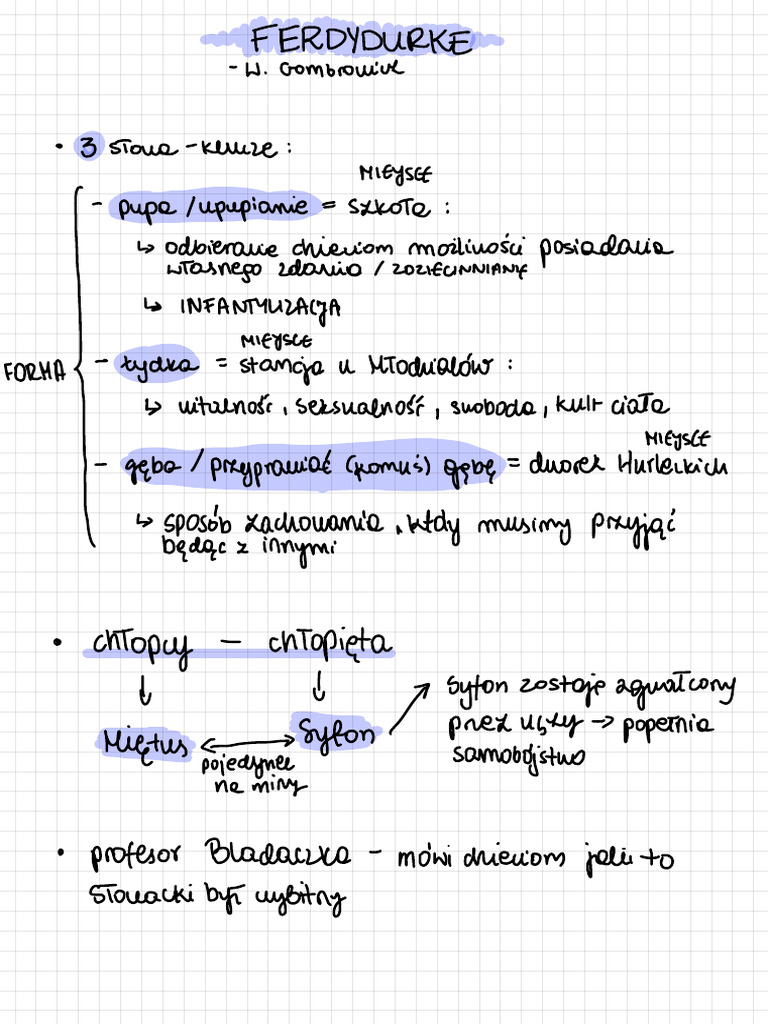 FERDYDURKE
- W. Gombrowicz
• 3 słowa - klucze :
MIEJSCE
- pupa / upupianie = szkoła :
↳ odbieranie dzieciom możliwości posiadania
własnego zdania / ZDZIECINNIANIE
↳ INFANTYLIZACJA
MIEJSCE
FORMA
- łydka = stancja u Młodziaków :
↳ witalność, seksualność, swoboda, kult ciała
MIEJSCE
- gęba / przyprawiać (komuś) gębę = dworek Hurleckich
↳ sposób zachowania, któy musimy przyjąć
będąc z innymi
• chłopcy - chłopięta
↓ ↓
Syfon zostaje zgwałcony
Miętus ↔ Syfon
przez uszy → popełnia
pojedynek
samobójstwo
na miny
• profesor Bladaczka - mówi dzieciom jaki to
Słowacki był wybitny